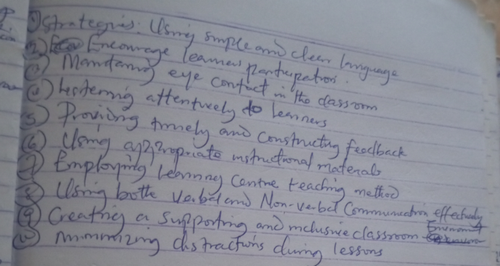 ① Strategies: Using simple and clear language
② Encourage learners participation.
③ Maintaining eye contact in the classroom
④ Listening attentively to learners
⑤ Providing timely and constructing feedback
⑥ Using appropriate instructional materials
⑦ Employing Learning Centre teaching method
⑧ Using both verbal and Non-verbal Communication effectively
⑨ Creating a supporting and inclusive classroom
⑩ minimizing distractions during lessons